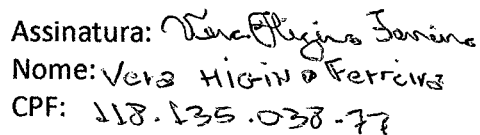 Assinatura: Vera Higino Ferreira
Nome: Vera Higino Ferreira
CPF: 118.135.038-77